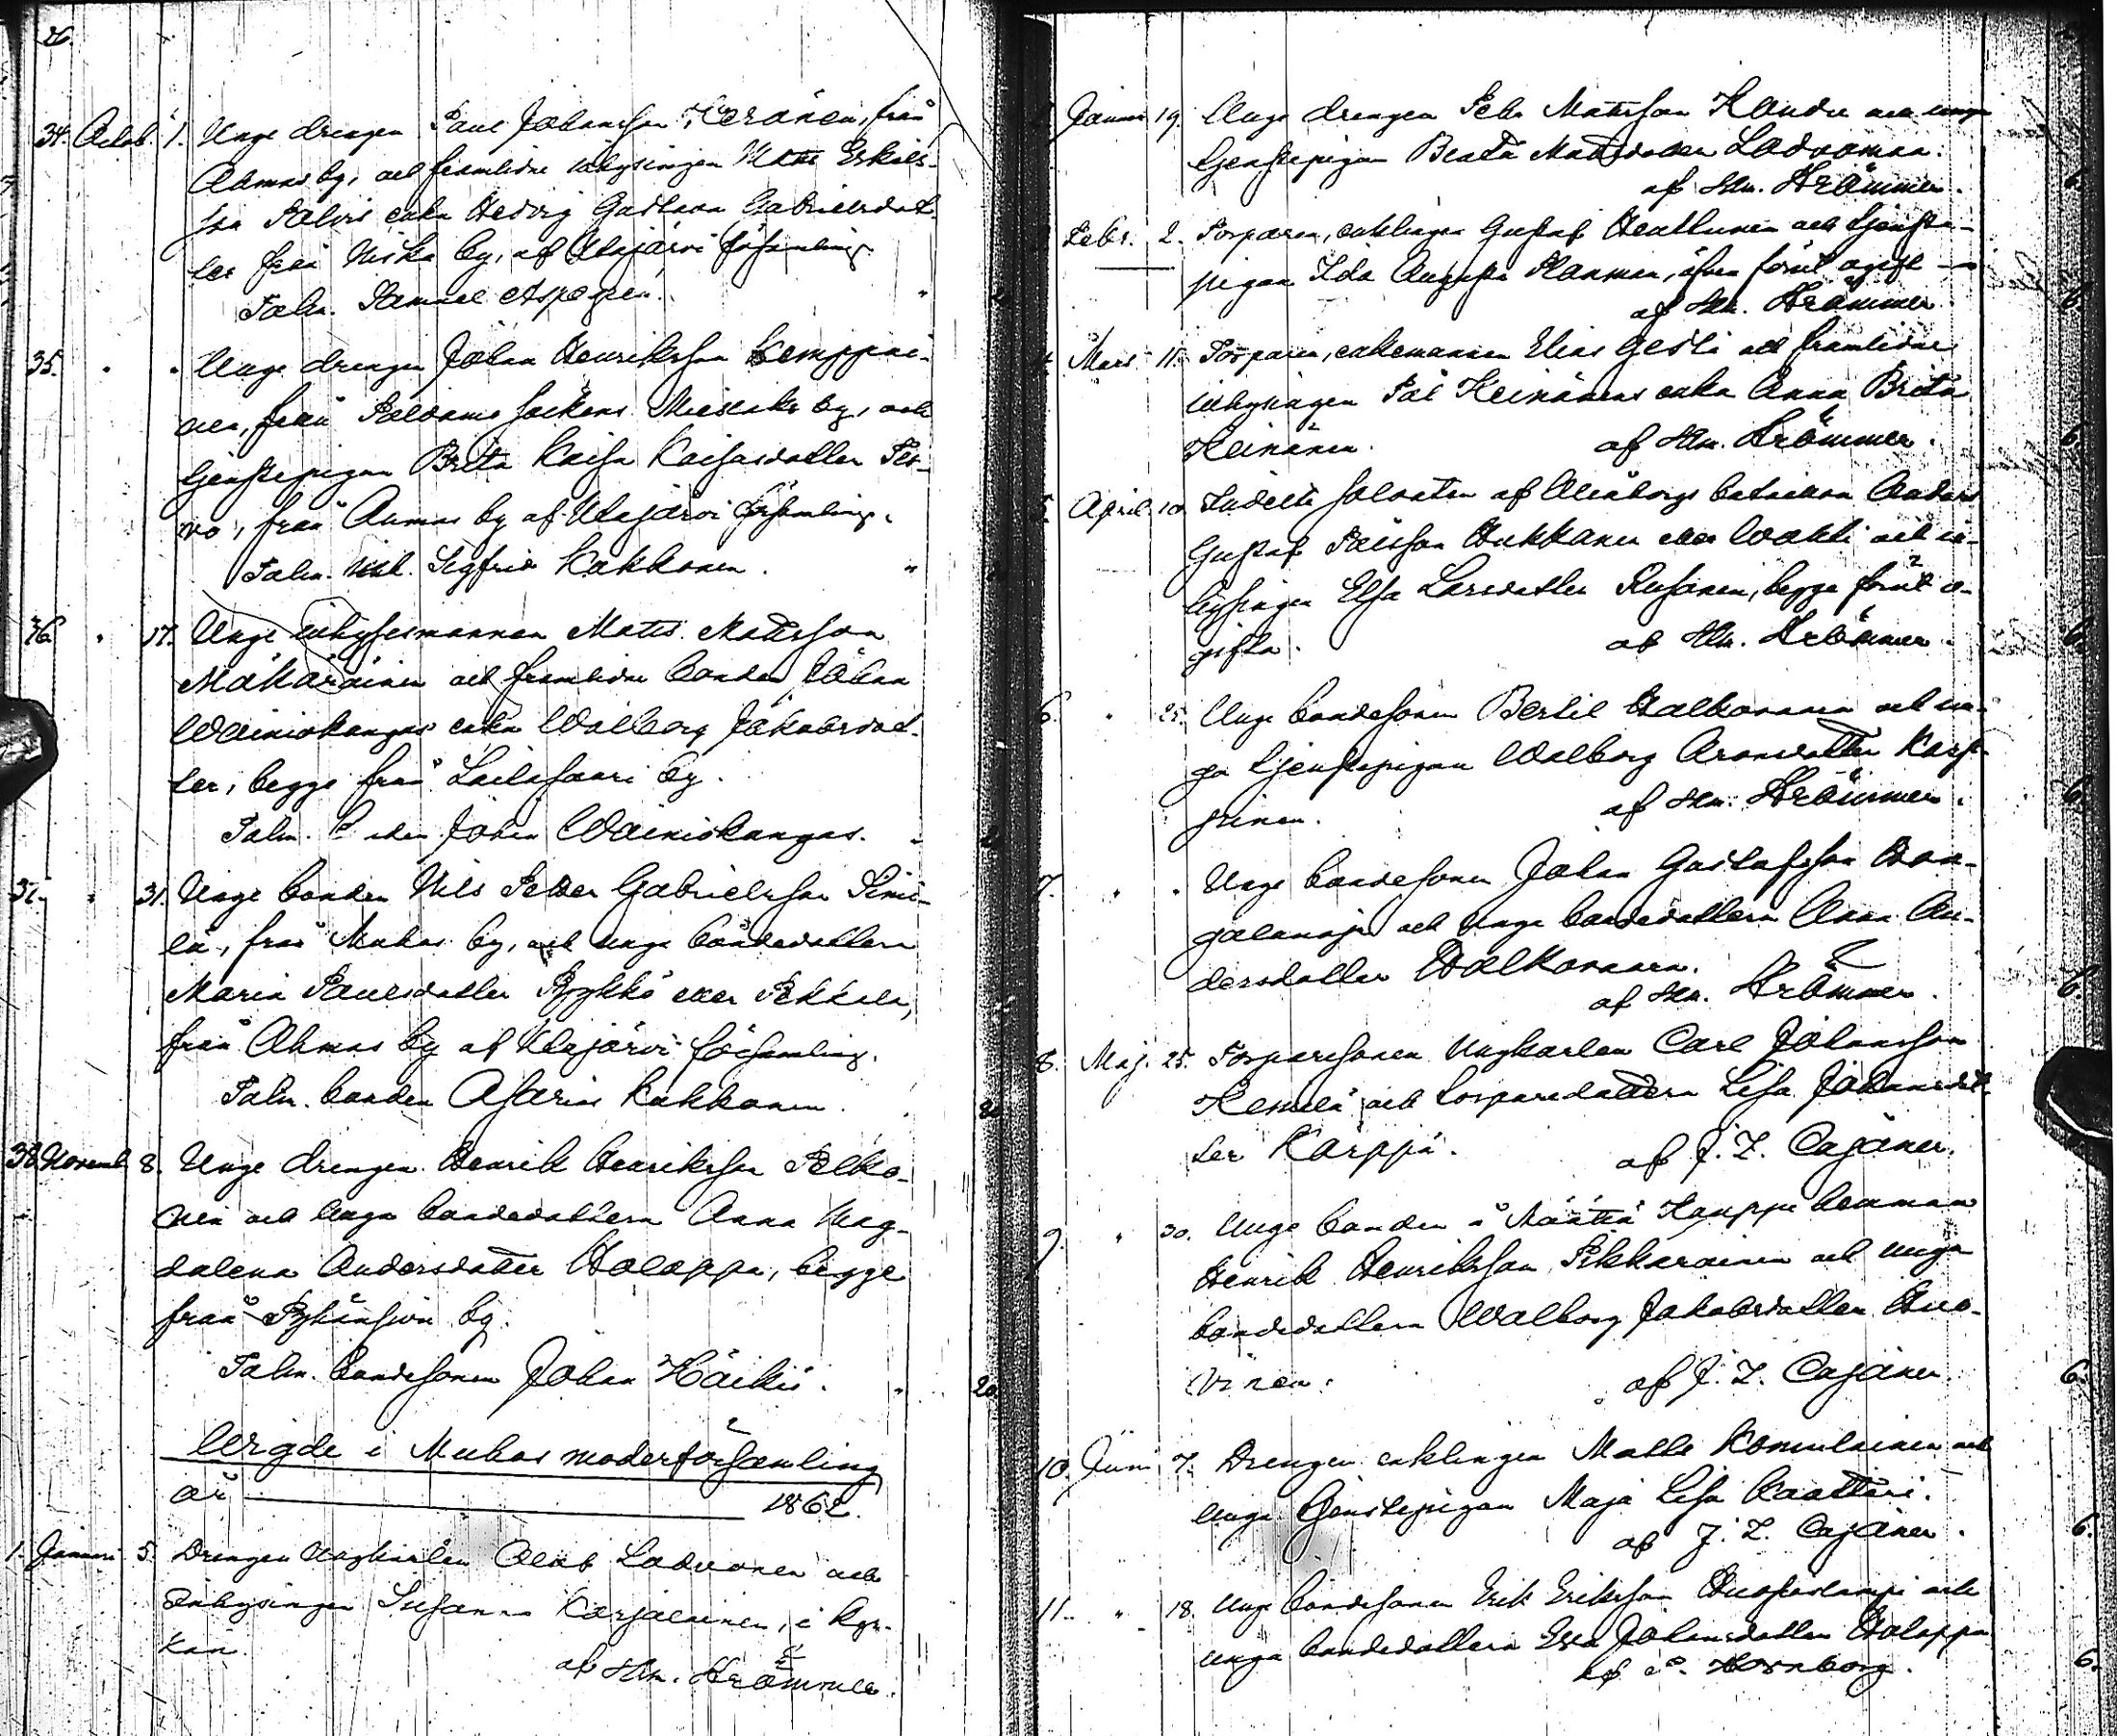 26.
34. Octob. 1. Unge drengen Paul Johansson Keränen, från
Ahmas by, och framlidne inhysingen Matts Eskels-
son Palvis enka Hedvig Gustava Gabrielsdot-
ter från Niska by, af Utajärvi församling.
Talm. Samuel Aspegren. "
35. " " Unge drengen Johan Henriksson Kemppai-
nen, från Paldamo sockens Mieslaks by, och
tjenstepigan Brita Kaisa Kaisasdotter Ter-
vo, från Ahmas by af Utajärvi församling.
Talm. Sigfrid Kakkonen. "
36. " 17. Unge inhysesmannen Matts Mattsson
Mäkäräinen och framlidne bonden Johan
Wäiniökangas enka Walborg Jakobsdot-
ter, begge från Laitasaari by.
Talm. Johan Wäiniökangas. "
37. " 31. Unge bonden Nils Petter Gabrielsson Simi-
lä, från Muhos by, och unga bondedottern
Maria Paulsdotter Pyykkö eller Pekkala,
från Ahmas by af Utajärvi församling.
Talm. bonden Asarias Kakkonen. "
38. Novemb. 8. Unge drengen Henrik Henriksson Pelko-
nen och unga bondedottern Anna Mag-
dalena Andersdotter Holappa, begge
från Pyhänsivu by.
Talm. bondesonen Johan Häikiö. " 20
Wigde i Muhos moderförsamling
år 1862.
1. Januari 5. Drengen ungkarlen Olof Ladvonen och
inhysingen Susanna Karjalainen, i kyr-
kan.
af Hr. Krömmer.
Januar 19. Unge drengen Petr Mattsson och unga
tjenstepigan Beata Mattsdotter
af Hr. Krömmer. 6.
Febr. 2. Torparen, enklingen Gustaf och tjenste-
pigan Ida Augusta Planman, äfven förut ogift
af Hr. Krömmer. 6.
4. Mars 11. Torparen, enkemannen Elias Gesti och framlidne
inhysingen Pål Keinänens enka Anna Brita
Keinänen. af Hr. Krömmer. 6.
5. April 10. Indelte soldaten af Uleåborgs bataillon Anders
Gustaf Pålsson Hukkanen eller Wakti och in-
hysingen Elsa Larsdotter Rusanen, begge förut o-
gifta. af Hr. Krömmer. 6.
6. " 25. Unge bondesonen Bertil Halkomaa och un-
ga tjenstepigan Walborg Aronsdotter Karp-
pinen. af Hr. Krömmer. 6.
7. " " Unge bondesonen Johan Gustafsson
och unga bondedottern Anna An-
dersdotter
af Hr. Krömmer. 6.
8. Maj. 25. Torparesonen ungkarlen Carl Johansson
Kemilä och torparedottern Lisa Johansdot-
ter Karppi. af J. F. Cajaner.
9. " 30. Unge bonden å Määttä Kauppi benman
Henrik Henriksson Pikkarainen och unga
bondedottern Walborg Jakobsdotter Huo-
vinen. af J. F. Cajaner 6.
10. Juni 7. Drengen enklingen Matts Komulainen och
unga tjenstepigan Maja Lisa Kaattari.
af J. F. Cajaner. 6.
11. " 18. Unge bondesonen Erik Eriksson och
unga bondedottern Eva Johansdotter Holappa
af Hornborg. 6.